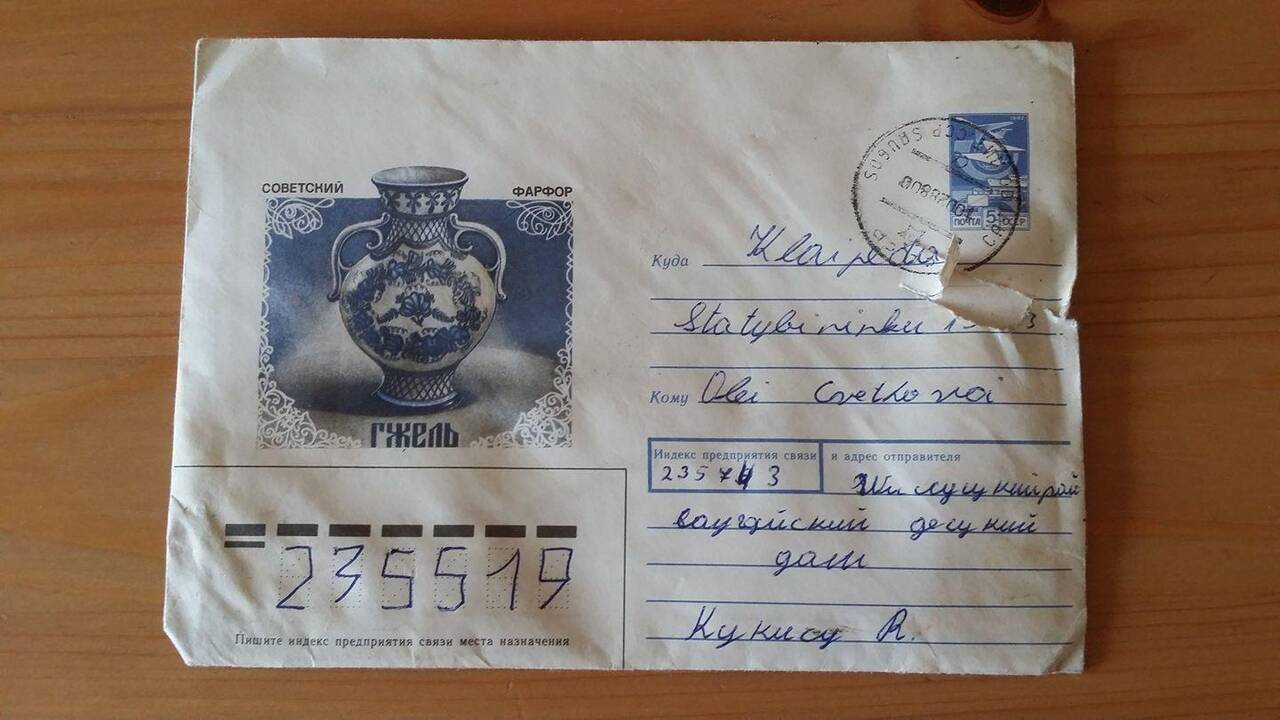 СОВЕТСКИЙ ФАРФОР
ГЖЕЛЬ
1982
ПОЧТА 5к СССР
Куда Klaipeda
Statybininku
Кому Olei Cvetkovai
Индекс предприятия связи и адрес отправителя
235743 Шилуцкий рай
саугайский десукий
дом
Кукису R.
235519
Пишите индекс предприятия связи места назначения